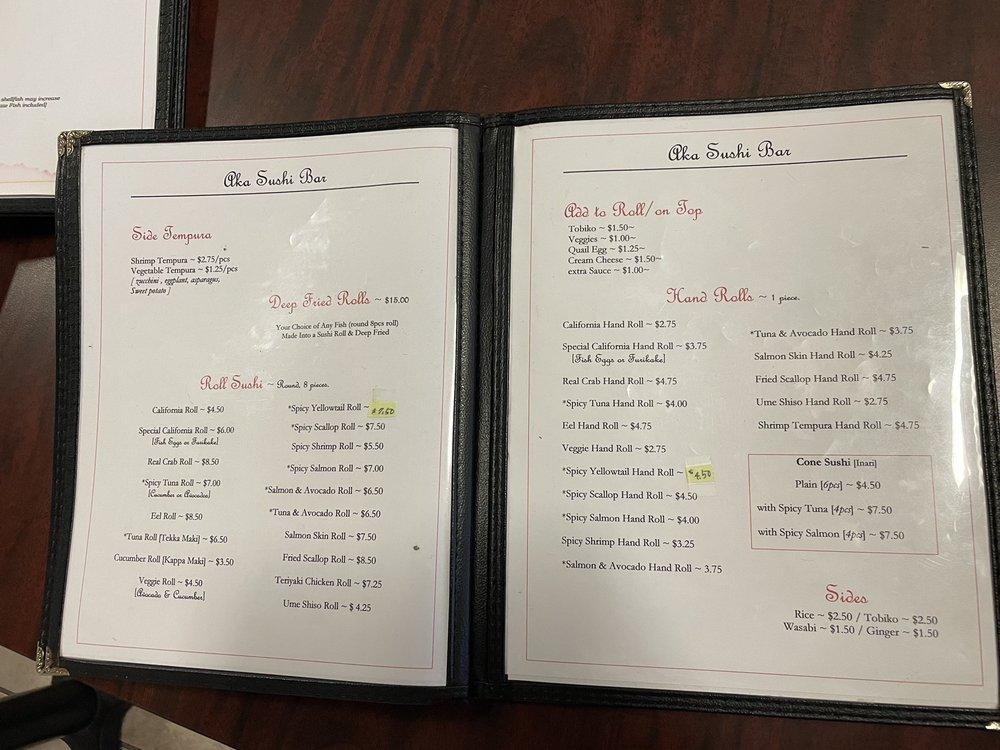 shellfish may increase
Fish included]
Aka Sushi Bar
Side Tempura
Shrimp Tempura ~ $2.75/pcs
Vegetable Tempura ~ $1.25/pcs
[ zucchini , eggplant, asparagus,
Sweet potato ]
Deep Fried Rolls ~ $15.00
Your Choice of Any Fish (round 8pcs roll)
Made Into a Sushi Roll & Deep Fried
Roll Sushi ~ Round, 8 pieces.
California Roll ~ $4.50
Special California Roll ~ $6.00
[Fish Eggs or Furikake]
Real Crab Roll ~ $8.50
*Spicy Tuna Roll ~ $7.00
[Cucumber or Avocados]
Eel Roll ~ $8.50
*Tuna Roll [Tekka Maki] ~ $6.50
Cucumber Roll [Kappa Maki] ~ $3.50
Veggie Roll ~ $4.50
[Avocado & Cucumber]
*Spicy Yellowtail Roll ~ $7.50
*Spicy Scallop Roll ~ $7.50
Spicy Shrimp Roll ~ $5.50
*Spicy Salmon Roll ~ $7.00
*Salmon & Avocado Roll ~ $6.50
*Tuna & Avocado Roll ~ $6.50
Salmon Skin Roll ~ $7.50
Fried Scallop Roll ~ $8.50
Teriyaki Chicken Roll ~ $7.25
Ume Shiso Roll ~ $ 4.25
Aka Sushi Bar
Add to Roll/on Top
Tobiko ~ $1.50~
Veggies ~ $1.00~
Quail Egg ~ $1.25~
Cream Cheese ~ $1.50~
extra Sauce ~ $1.00~
Hand Rolls ~ 1 piece.
California Hand Roll ~ $2.75
Special California Hand Roll ~ $3.75
[Fish Eggs or Furikake]
Real Crab Hand Roll ~ $4.75
*Spicy Tuna Hand Roll ~ $4.00
Eel Hand Roll ~ $4.75
Veggie Hand Roll ~ $2.75
*Spicy Yellowtail Hand Roll ~ $4.50
*Spicy Scallop Hand Roll ~ $4.50
*Spicy Salmon Hand Roll ~ $4.00
Spicy Shrimp Hand Roll ~ $3.25
*Salmon & Avocado Hand Roll ~ 3.75
*Tuna & Avocado Hand Roll ~ $3.75
Salmon Skin Hand Roll ~ $4.25
Fried Scallop Hand Roll ~ $4.75
Ume Shiso Hand Roll ~ $2.75
Shrimp Tempura Hand Roll ~ $4.75
Cone Sushi [Inari]
Plain [6pcs] ~ $4.50
with Spicy Tuna [4pcs] ~ $7.50
with Spicy Salmon [4pcs] ~ $7.50
Sides
Rice ~ $2.50 / Tobiko ~ $2.50
Wasabi ~ $1.50 / Ginger ~ $1.50